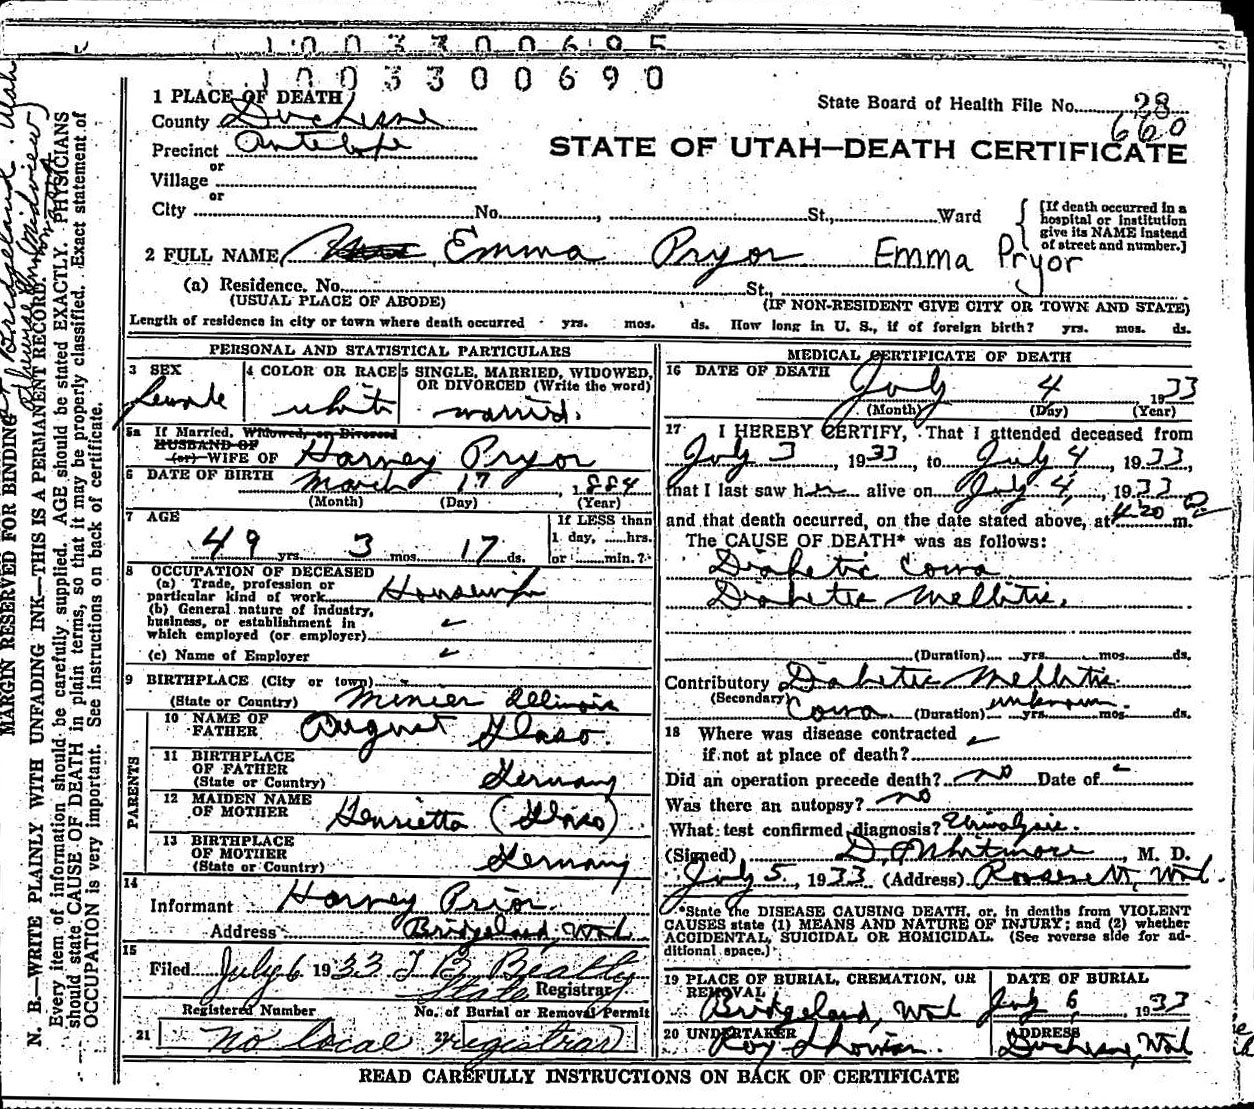 1003300695
1003300690
1 PLACE OF DEATH
County Duchesne
Precinct Antelope
or
Village
or
City No. , St., Ward
State Board of Health File No. 28
660
STATE OF UTAH—DEATH CERTIFICATE
[If death occurred in a
hospital or institution
give its NAME instead
of street and number.]
2 FULL NAME Emma Pryor Emma Pryor
(a) Residence. No. St.,
(USUAL PLACE OF ABODE) (IF NON-RESIDENT GIVE CITY OR TOWN AND STATE)
Length of residence in city or town where death occurred yrs. mos. ds. How long in U. S., if of foreign birth? yrs. mos. ds.
PERSONAL AND STATISTICAL PARTICULARS
3 SEX
female
4 COLOR OR RACE
white
5 SINGLE, MARRIED, WIDOWED,
OR DIVORCED (Write the word)
married.
5a If Married, Widowed, or Divorced
HUSBAND OF
(or) WIFE OF Harvey Pryor
6 DATE OF BIRTH March 17, 1884
(Month) (Day) (Year)
7 AGE
49 yrs 3 mos. 17 ds.
If LESS than
1 day, hrs.
or min.?
8 OCCUPATION OF DECEASED
(a) Trade, profession or
particular kind of work Housewife
(b) General nature of industry,
business, or establishment in
which employed (or employer)
(c) Name of Employer
9 BIRTHPLACE (City or town)
(State or Country) Minier Illinois
PARENTS
10 NAME OF
FATHER August
11 BIRTHPLACE
OF FATHER
(State or Country) Germany
12 MAIDEN NAME
OF MOTHER Henrietta
13 BIRTHPLACE
OF MOTHER
(State or Country) Germany
14
Informant Harvey Prior.
Address Bridgeland, Utah
15
Filed July 6 1933 Beatty
State Registrar
Registered Number No. of Burial or Removal Permit
21 22
No local registrar
MEDICAL CERTIFICATE OF DEATH
16 DATE OF DEATH
July 4 1933
(Month) (Day) (Year)
17 I HEREBY CERTIFY, That I attended deceased from
July 3, 1933, to July 4, 1933,
that I last saw her alive on July 4, 1933
and that death occurred, on the date stated above, at 4:20 P. m.
The CAUSE OF DEATH* was as follows:
Diabetic Coma
Diabetes Mellitis.
(Duration) yrs. mos. ds.
Contributory Diabetes Mellitis
(Secondary)
Coma. (Duration) unknown. yrs. mos. ds.
18 Where was disease contracted
if not at place of death?
Did an operation precede death? no Date of
Was there an autopsy? no
What test confirmed diagnosis? Urinalysis.
(Signed) Whitmore, M. D.
July 5, 1933 (Address) Roosevelt, Utah.
*State the DISEASE CAUSING DEATH, or, in deaths from VIOLENT
CAUSES state (1) MEANS AND NATURE OF INJURY; and (2) whether
ACCIDENTAL, SUICIDAL OR HOMICIDAL. (See reverse side for ad-
ditional space.)
19 PLACE OF BURIAL, CREMATION, OR
REMOVAL
Bridgeland, Utah
DATE OF BURIAL
July 6 1933
20 UNDERTAKER
Roy
ADDRESS
Duchesne, Utah
READ CAREFULLY INSTRUCTIONS ON BACK OF CERTIFICATE
MARGIN RESERVED FOR BINDING
N. B.—WRITE PLAINLY WITH UNFADING INK—THIS IS A PERMANENT RECORD.
Every item of information should be carefully supplied. AGE should be stated EXACTLY. PHYSICIANS
should state CAUSE OF DEATH in plain terms, so that it may be properly classified. Exact statement of
OCCUPATION is very important. See instructions on back of certificate.
Bridgeland Utah